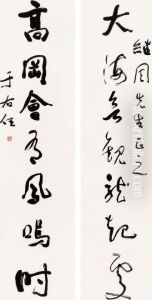 繼周先生正之
大海無觀龍起處
高岡會有鳳鳴時
于右任